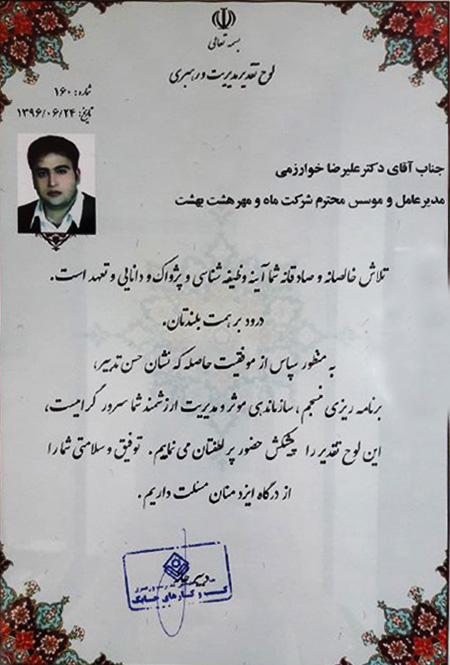 بسمه تعالی
لوح تقدیر مدیریت و رهبری
شماره: ۱۶۰
تاریخ: ۱۳۹۶/۰۶/۲۴
جناب آقای دکتر علیرضا خوارزمی
مدیرعامل و موسس محترم شرکت ماه و مهر هشت بهشت
تلاش خالصانه و صادقانه شما آینه وظیفه شناسی و پژواک و دانایی و تعهد است.
درود بر همت بلندتان.
به منظور سپاس از موفقیت حاصله که نشان حسن تدبیر،
برنامه ریزی منسجم، سازماندهی موثر و مدیریت ارزشمند شما سرور گرامیست،
این لوح تقدیر را پیشکش حضور پر لطفتان می نماییم. توفیق و سلامتی شما را
از درگاه ایزد منان مسئلت داریم.
کسب و کارهای خانگی